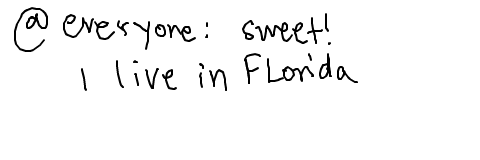 @everyone: sweet!
I live in Florida